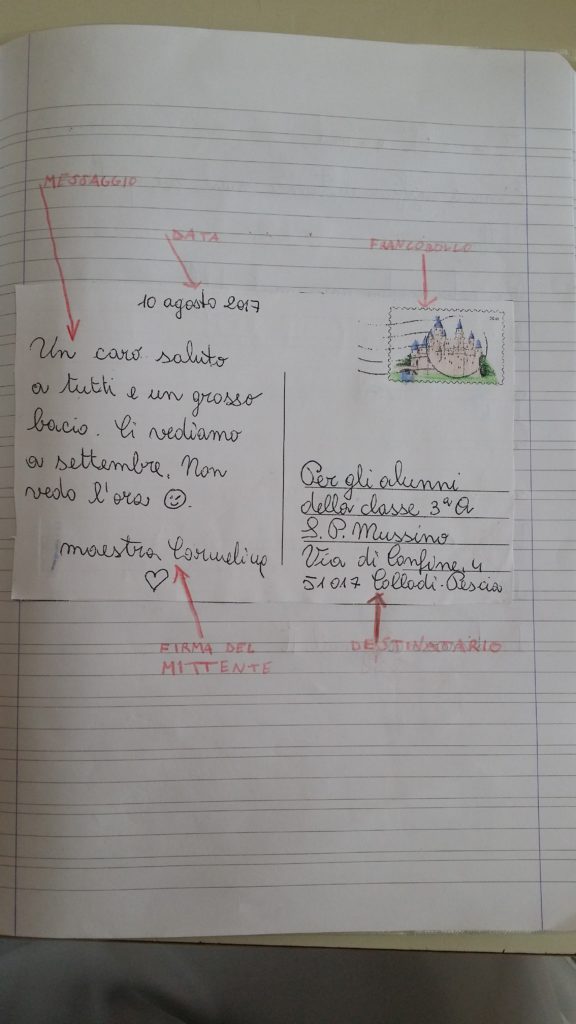 MESSAGGIO
DATA
FRANCOBOLLO
10 agosto 2017
Un caro saluto
a tutti e un grosso
bacio. Ci vediamo
a settembre. Non
vedo l'ora
maestra Carmelina
Per gli alunni
della classe 3ª A
S. P. Mussino
Via di Confine, 4
51017 Collodi-Pescia
FIRMA DEL
MITTENTE
DESTINATARIO